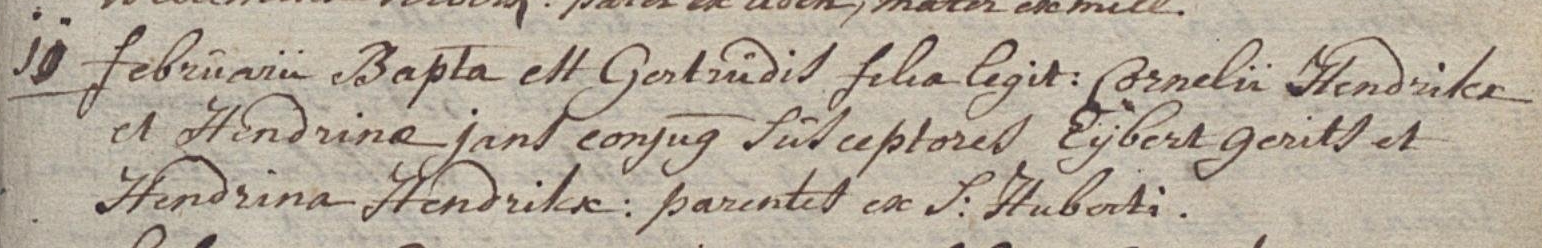 pater ex uden, mater ex mill.
10 februarii Bapta est Gertrudis filia legit: Cornelii Hendrikx
et Hendrinæ jans conjug susceptores Eÿbert gerits et
Hendrina Hendrikx: parentes ex S: Huberti.